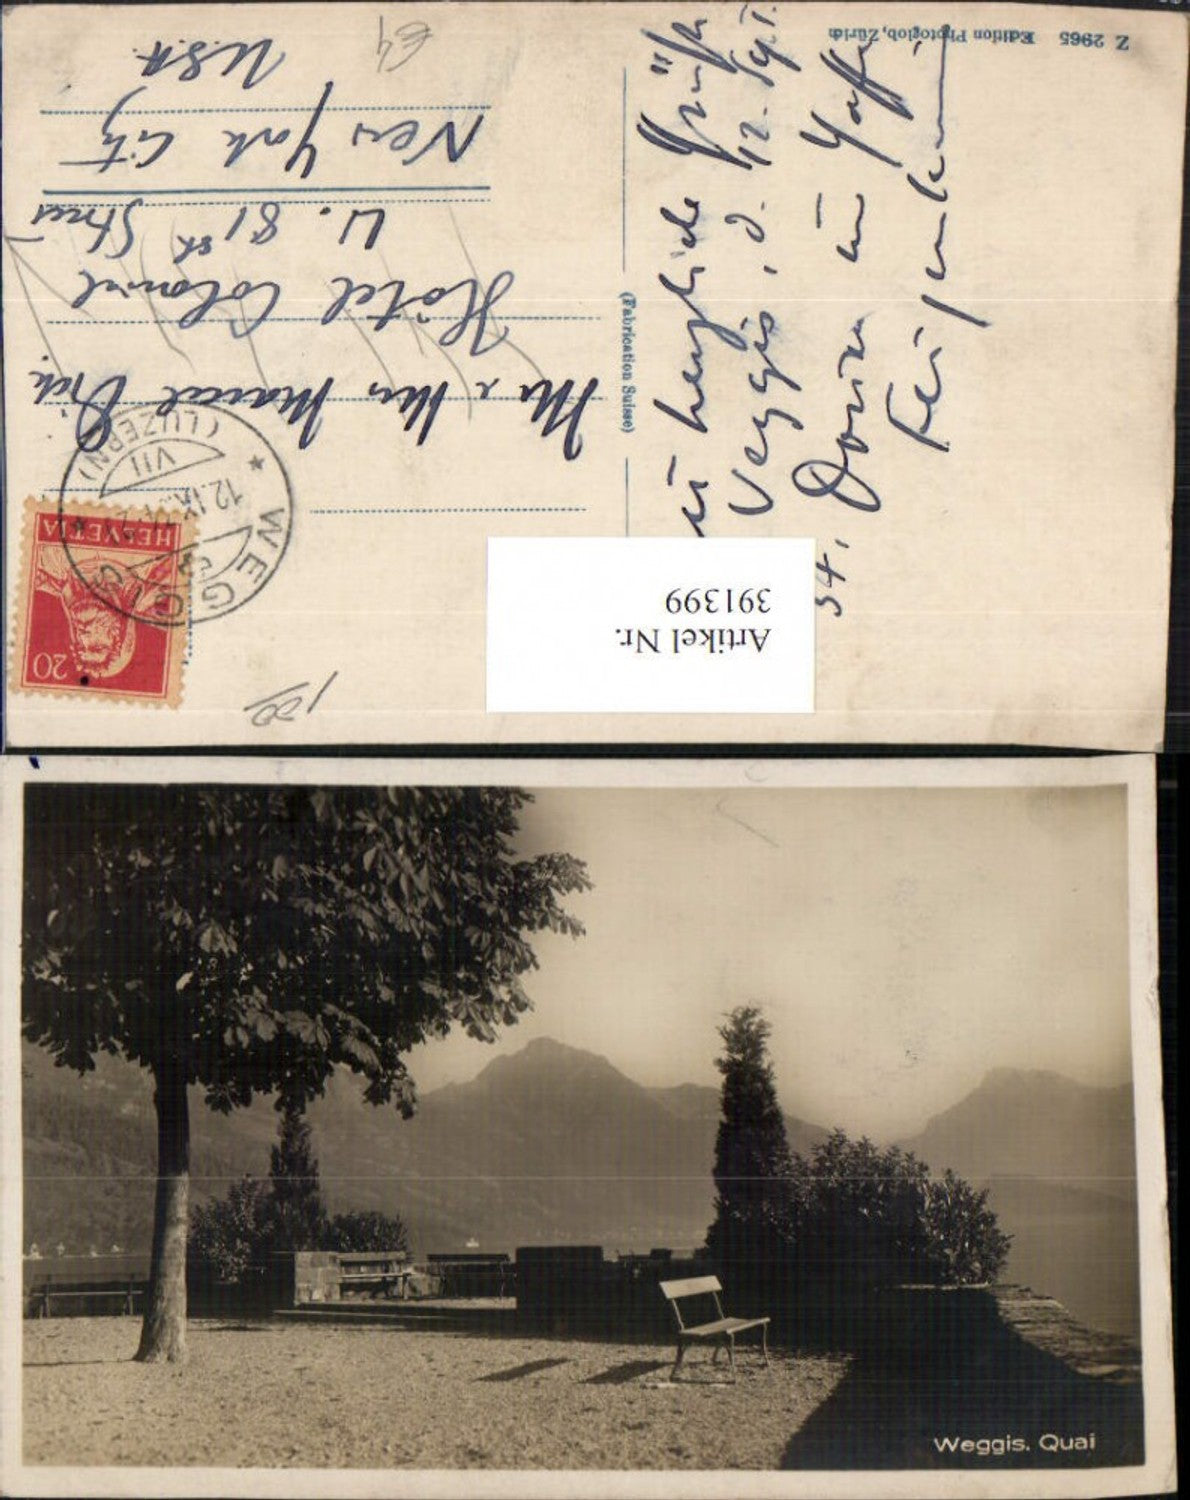 Z 2965 Edition Photoglob, Zürich
(Fabrication Suisse)
Mr & Mrs Marcel Dick
Hôtel Colonial
W. 81 st Street
New York City
U.S.A.
herzliche Grüße
Weggis, d. 12. Sept.
34.
HELVETIA
20
WEGGIS
(LUZERN)
12.IX.34
VII
Artikel Nr.
391399
Weggis. Quai